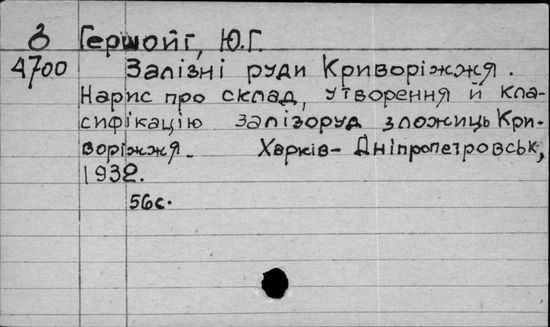 8 Гершойг, Ю.Г.
4700 Залізні руди Криворіжжя.
Нарис про склад, утворення й кла-
сифікацію залізоруд зложищь Кри-
воріжжя. Харків-Дніпропетровськ,
1932.
56с.